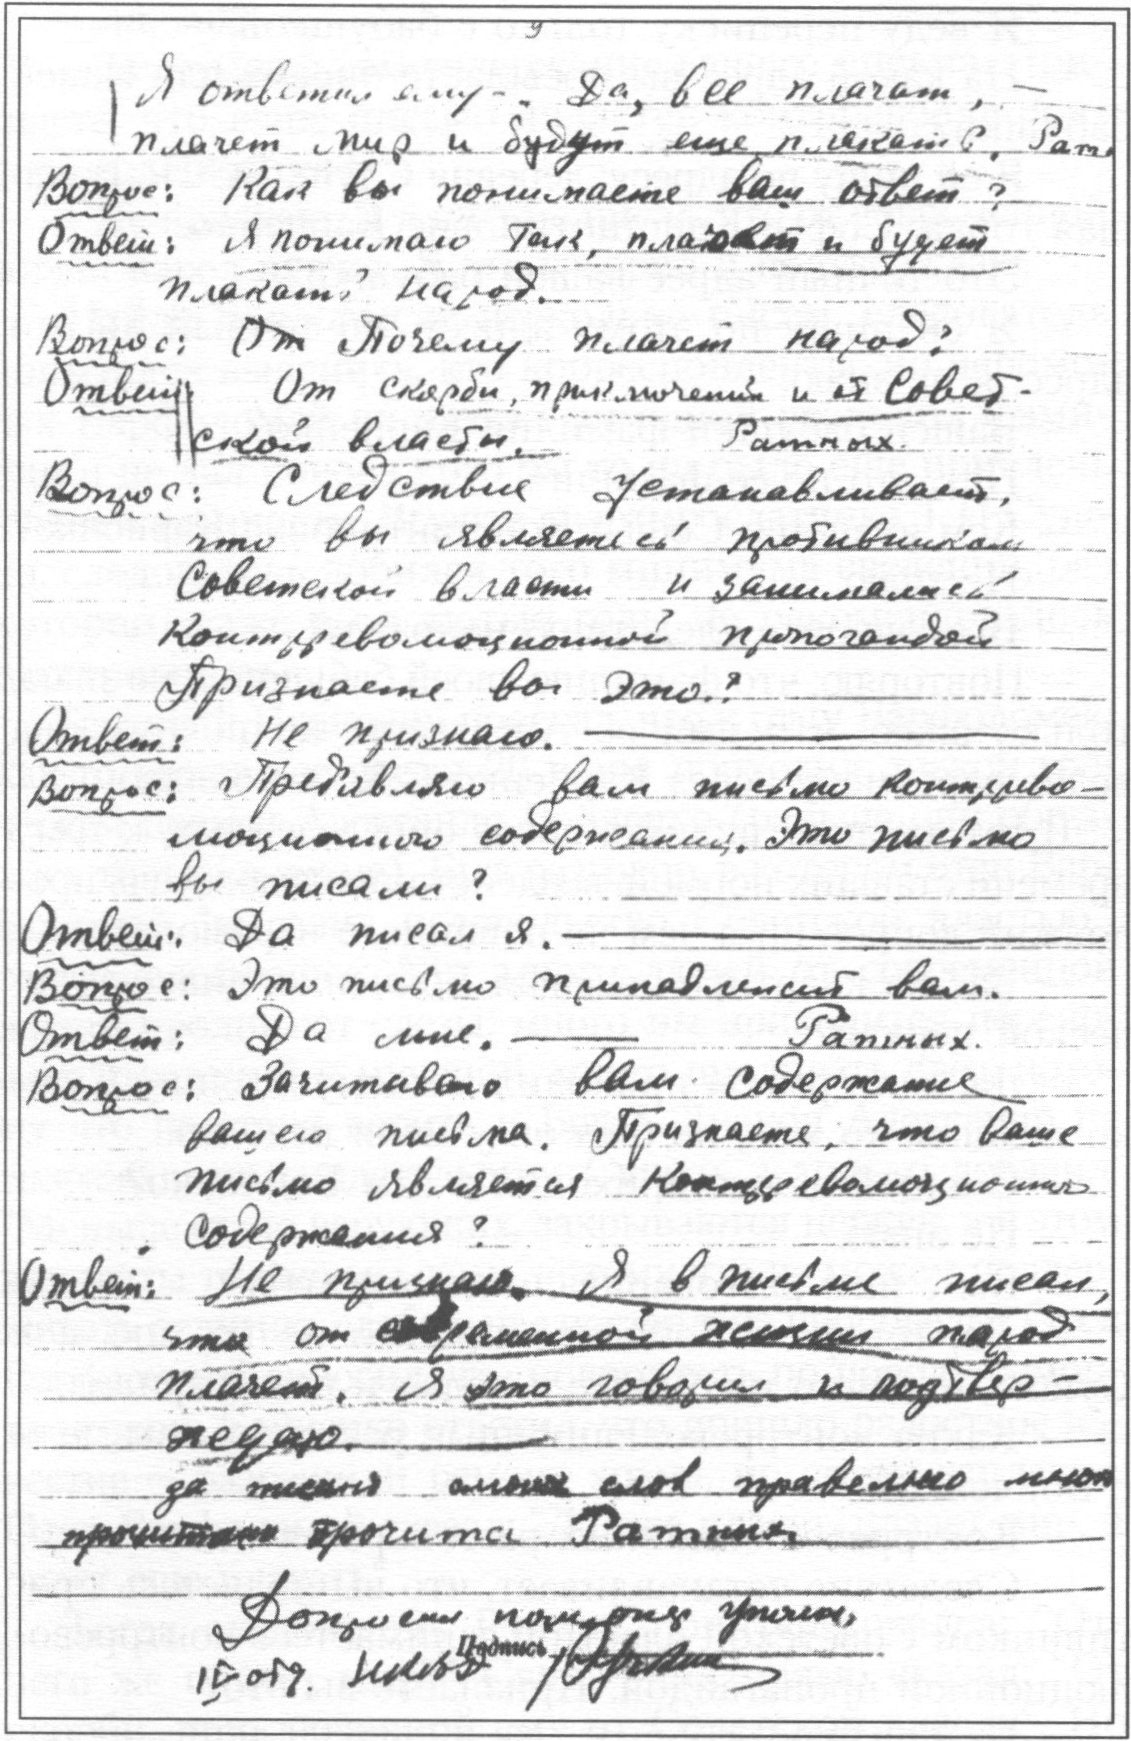 Я ответил ему -. Да, все плачат, —
плачет мир и будут еще плакать. Рат.
Вопрос: Как вы понимаете ваш ответ?
Ответ: Я понимаю так, плачет и будет
плакать народ.
Вопрос: От Почему плачет народ?
Ответ: От скорби, приключений и от Совет-
ской власты. Ратных.
Вопрос: Следствие устанавливает,
что вы являетесь противником
Советской власти и занимались
контрреволюционной пропогандой
Признаете вы это?
Ответ: Не признаю.
Вопрос: Предъявляю вам письмо контррево-
люционного содержания. Это письмо
вы писали?
Ответ: Да писал я.
Вопрос: Это письмо принадлежит вам.
Ответ: Да мне. Ратных.
Вопрос: Зачитываю вам содержание
вашего письма. Признаете, что ваше
письмо является контрреволюционного
содержания?
Ответ: Не признаю. Я в письме писал,
что от современной жизни народ
плачет. Я это говорил и подтвер-
ждаю.
слов правельно мною
прочитано Ратных
Допросил
Подпись
IV отд. НКВД